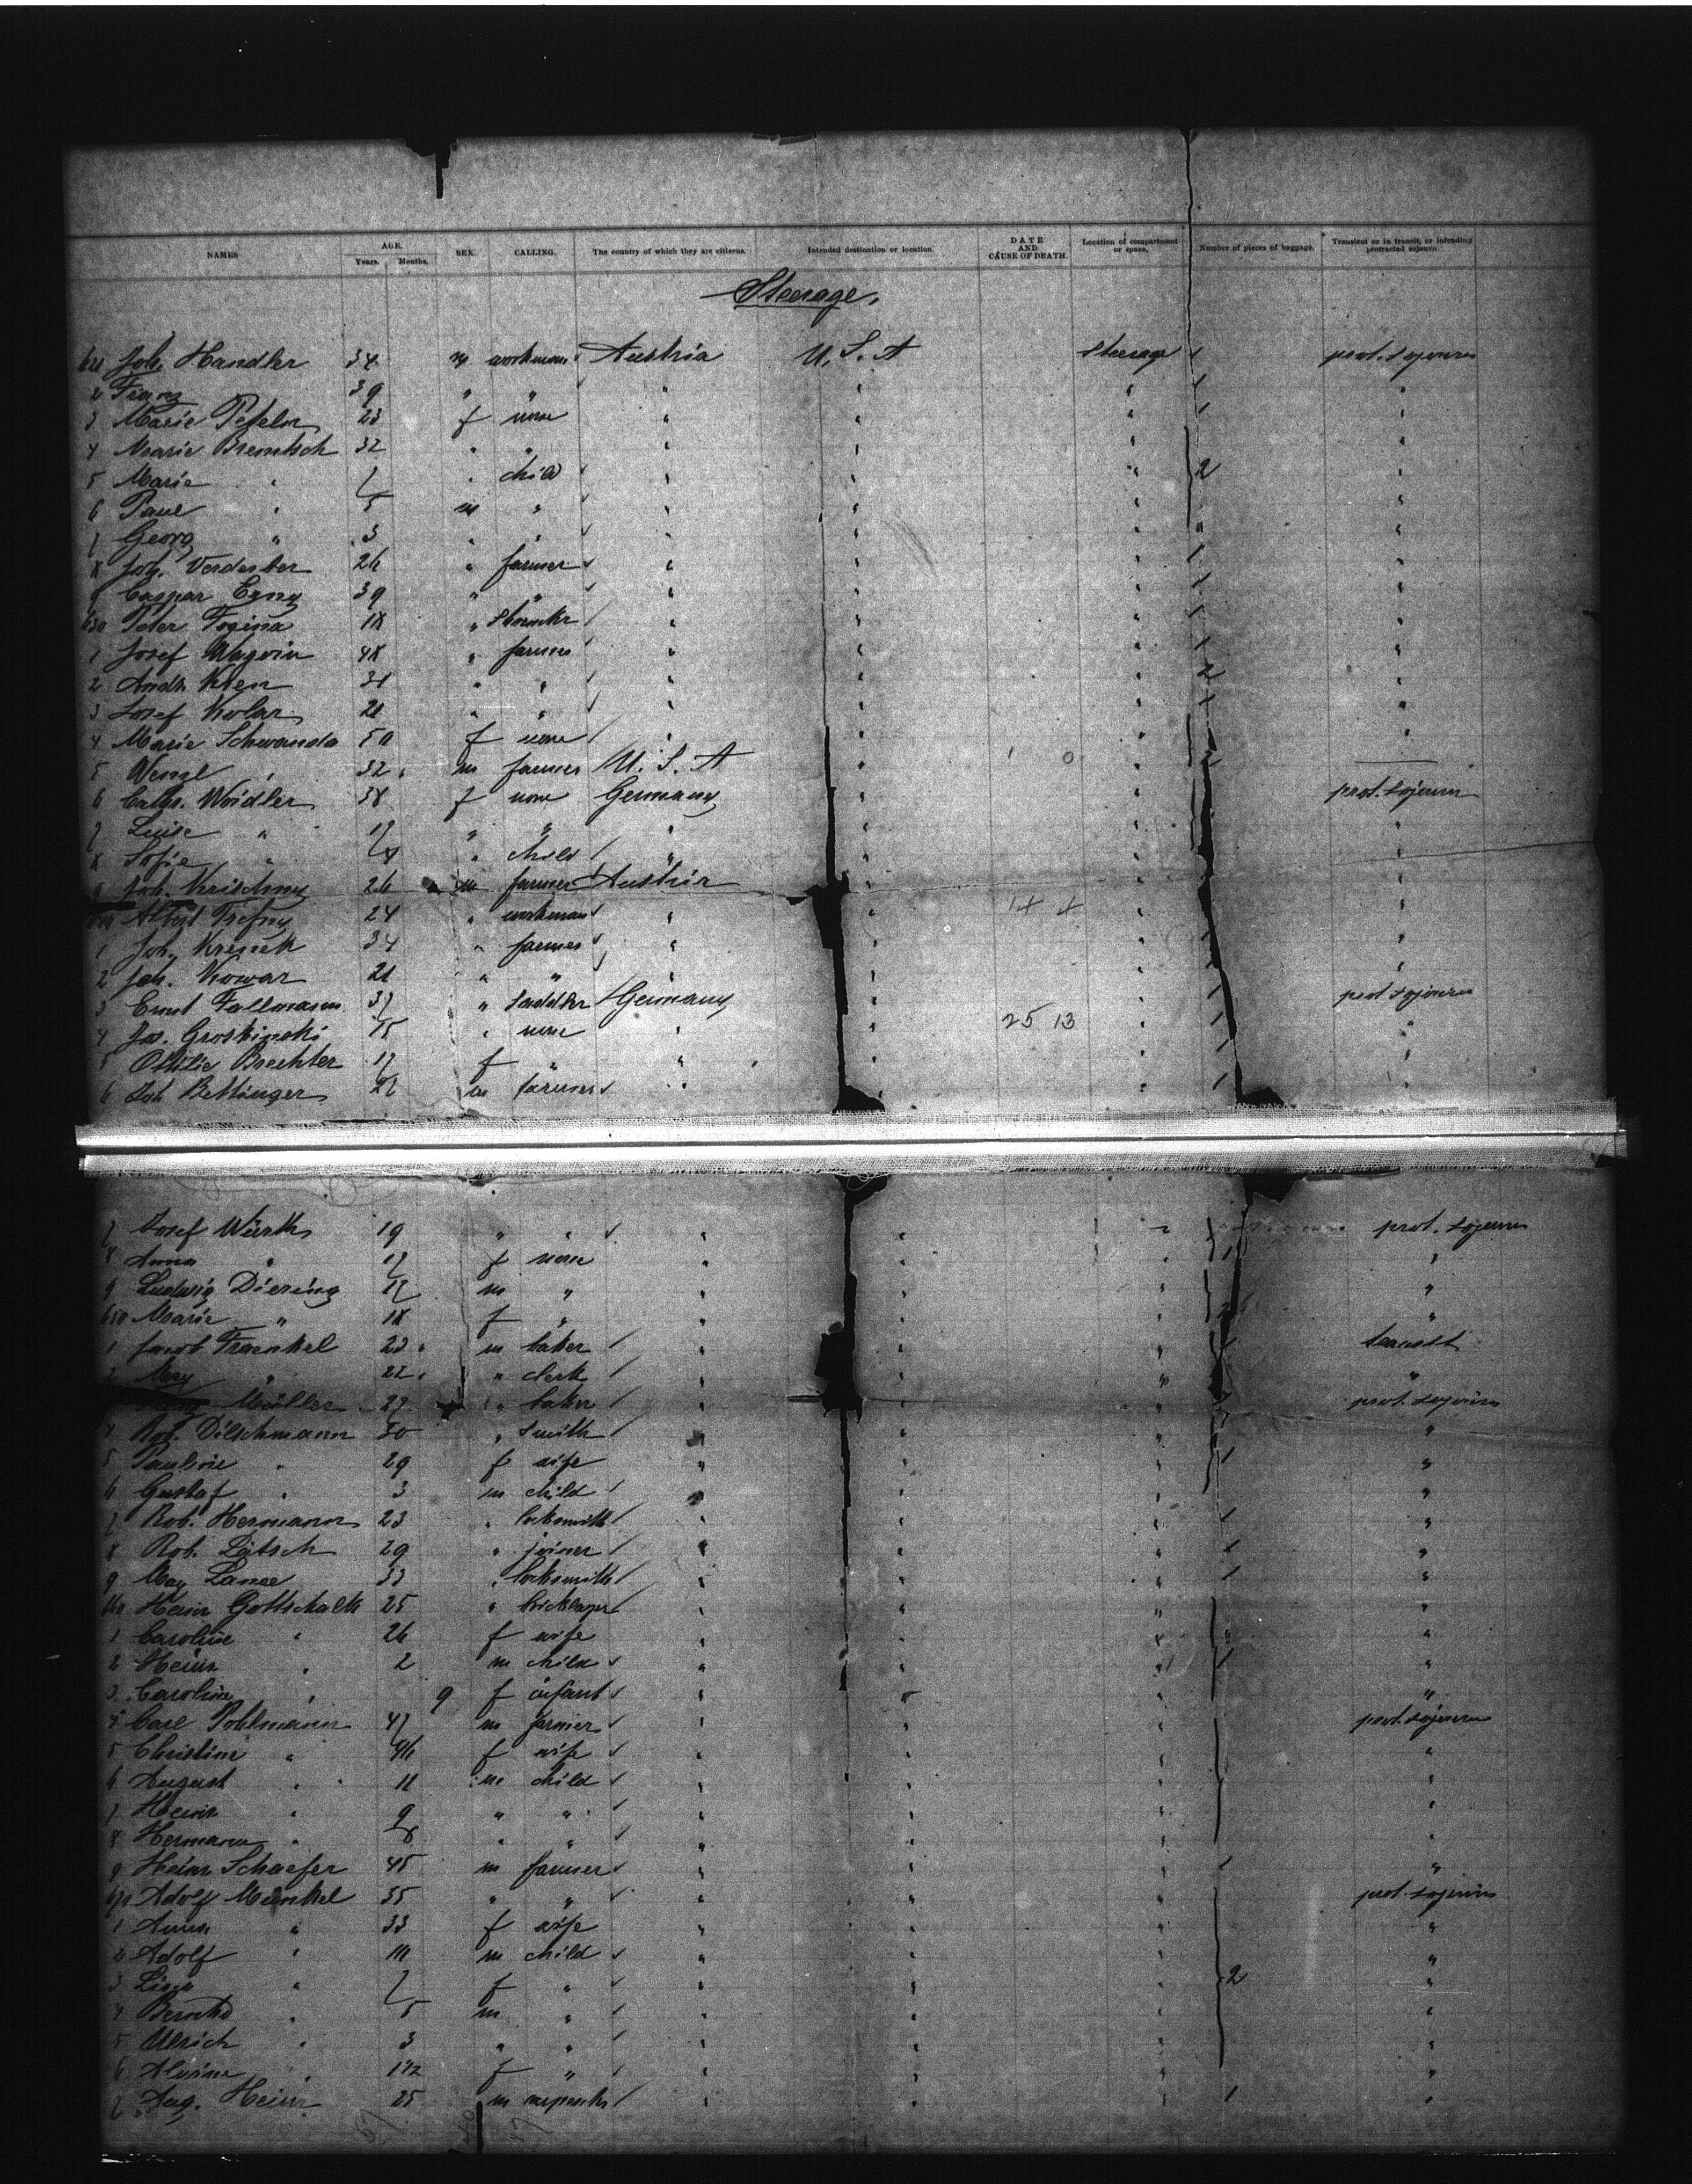 NAMES AGE. Years. Months. SEX. CALLING. The country of which they are citizens. Intended destination or location. DATE AND CAUSE OF DEATH. Location of compartment or space. Number of pieces of baggage. Transient or in transit, or intending protracted sojourn.
Steerage.
621 Joh. Handler 34 m workman Austria U. S. A Steerage 1 prot. sojourn
2 Franz 39 " " " " " 1 "
3 Marie 23 f none " " " 1 "
4 Marie 32 " " " " " "
5 Marie " 7 " child " " " 2 "
6 Paul " 5 m " " " " "
7 Georg " 3 " " " " " "
8 Joh. Verderber 26 " farmer " " " 1 "
9 Caspar 39 " " " " " 1 "
630 Peter 18 " " " " 1 "
1 Josef 48 " farmer " " " 1 "
2 Andr. Kren 31 " " " " " 2 "
3 Josef Kolar 21 " " " " " 1 "
4 Marie Schwanda 50 f none " " " "
5 Wenzl " 32 m farmer U. S. A " " 2
6 Woidler 38 f none Germany " " prot. sojourn
7 Luise " 17 " " " " " "
8 Sofie " " child " " " "
9 Joh. Krischny 26 m farmer Austria " " "
640 Albert 24 " workman " " 14 4 " "
1 Joh. Krenek 34 " farmer " " " "
2 Joh. Kowar 21 " " " " " "
3 Ernst Fallmann 37 " saddler Germany " " 1 prot. sojourn
4 Jos. Groskinski " none " " 25 13 " 1 "
5 Ottilie Brechter 17 f " " " " 1 "
6 Joh. Bettinger 27 m farmer " " " 1 "
7 Josef Würth 19 " " " " " prot. sojourn
8 Anna " 17 f none " " " 1 "
9 Ludwig Diering 17 m " " " " "
650 Marie " 18 f " " " " 2 "
1 Jacob Fraenkel 23 m baker " " " 1 transit
2 Max " 22 " clerk " " " "
Müller 27 " baker " " " prot. sojourn
4 Rob. Dilschmann 30 " smith " " " "
5 Pauline " 29 f wife " " " 1 "
6 Gustaf " 3 m child " " " "
7 Rob. Hermann 23 " locksmith " " " 1 "
8 Rob. Lätsch 29 " joiner " " " 1 "
9 Max 33 " locksmith " " " 1 "
660 Heinr. Gottschalk 25 " bricklayer " " " "
1 Caroline " 26 f wife " " " "
2 Heinr. " 2 m child " " " 1 "
3 Carolin " 9 f infant " " "
4 Carl Pohlmann 47 m farmer " " " prot. sojourn
5 Christine " 46 f wife " " " "
6 August " 11 m child " " " "
7 Heinr. " 9 " " " " " "
8 Hermann " 8 " " " " " "
9 Heinr. Schaefer 45 m farmer " " " 1 "
670 Adolf Menkel 35 " " " " " prot. sojourn
1 Anna " 33 f wife " " " "
2 Adolf " 10 m child " " " "
3 " 7 f " " " " 2 "
4 Bernhd " 5 m " " " " "
5 Ulrich " 3 " " " " " "
6 Alwine " 1 1/2 f " " " " "
7 Aug. Hein 25 m carpenter " " " 1 "